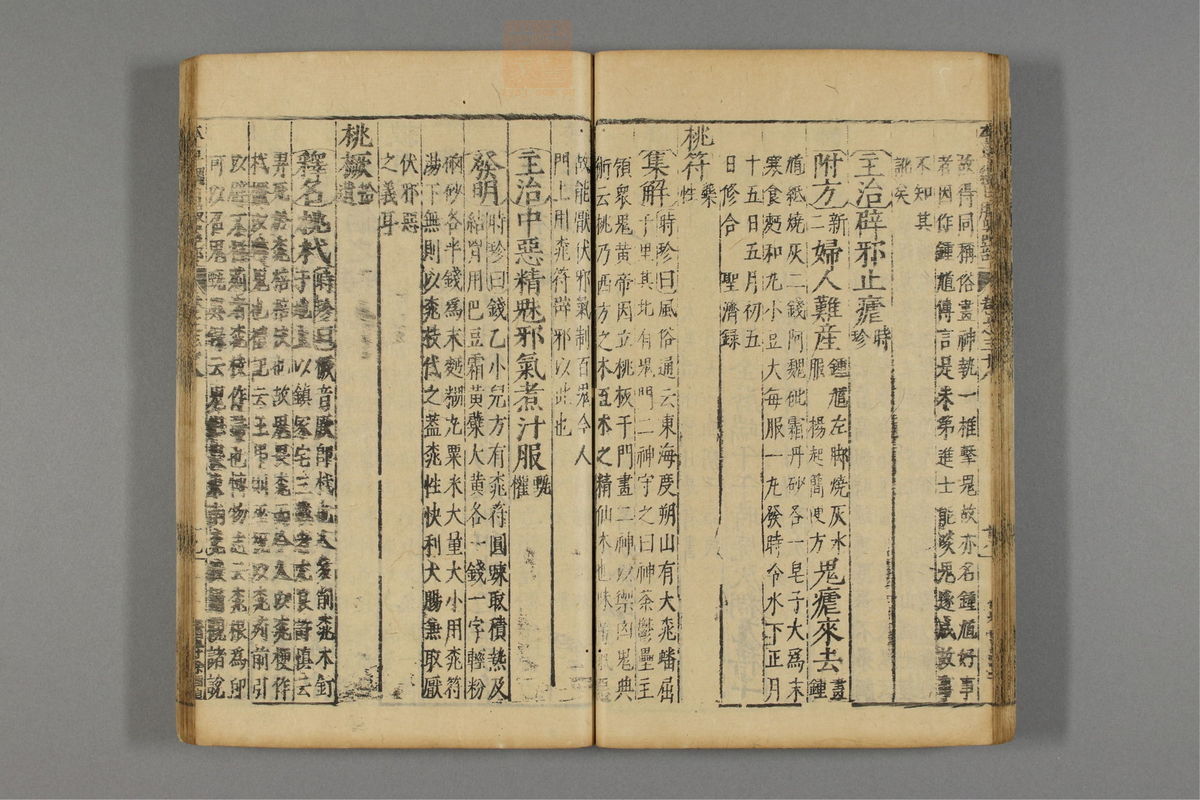 故得同稱俗畫神執一椎擊鬼故亦名鍾馗好事
者因作鍾馗傳言是未第進士能啖鬼遂成故事
不知其
訛矣
主治辟邪止瘧時珍
附方新二婦人難産鍾馗左脚燒灰水服 楊起簡便方鬼瘧來去畫鍾
馗紙燒灰二錢阿魏砒霜丹砂各一皂子大爲末
寒食麪和丸小豆大每服一丸發時冷水下正月
十五日五月初五
日修合 聖濟錄
桃符藥性
集解時珍曰風俗通云東海度朔山有大桃蟠屈
千里其北有鬼門二神守之曰神荼鬱壘主
領衆鬼黃帝因立桃板于門畫二神以禦凶鬼典
術云桃乃西方之木五木之精仙木也味辛氣惡
故能厭伏邪氣制百鬼今人
門上用桃符辟邪以此也
主治中惡精魅邪氣煮汁服甄權
發明時珍曰錢乙小兒方有桃符圓疎取積熱及
結胷用巴豆霜黃蘗大黃各一錢一字輕粉
硇砂各半錢爲末麪糊丸粟米大量大小用桃符
湯下無則以桃枝代之蓋桃性快利大腸兼取厭
伏邪惡
之義耳
桃橛拾遺
釋名桃杙時珍曰橛音厥即杙也人多削桃木釘
于地上以鎮家宅三載者尤良許慎云
羿死於桃棓棓杖也故鬼畏桃而今人以桃梗作
杙橛以辟鬼也禮記云王弔則巫祝以桃茢前引
以辟不祥茢者桃枝作帚也博物志云桃根爲印
可以召鬼甄異傳云鬼但畏東南桃枝爾據諸說